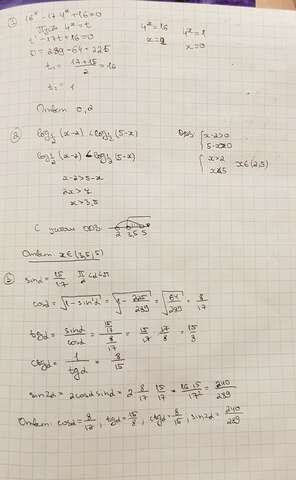 ① 16ˣ - 17·4ˣ + 16 = 0
Пусть 4ˣ = t
t² - 17t + 16 = 0
D = 289 - 64 = 225
t₁ = (17+15)/2 = 16
t₂ = 1
4ˣ = 16    4ˣ = 1
x = 2    x = 0
Ответ 0, 2
② log½ (x-2) < log½ (5-x)    ОДЗ { x-2>0
5-x>0
log½ (x-2) < log½ (5-x)    { x>2
x<5    x∈(2,5)
x-2 > 5-x
2x > 7
x > 3,5
С учетом ОДЗ    2 3,5 5
Ответ x∈(3,5, 5)
③ sinα = 15/17    π/2 <α<π
cosα = √(1-sin²α) = √(1 - 225/289) = √(64/289) = 8/17
tgα = sinα/cosα = (15/17)/(8/17) = 15/17 · 17/8 = 15/8
ctgα = 1/tgα = 8/15
sin2α = 2cosα sinα = 2 · 8/17 · 15/17 = 16·15/17² = 240/289
Ответ: cosα = 8/17, tgα = 15/8, ctgα = 8/15, sin2α = 240/289